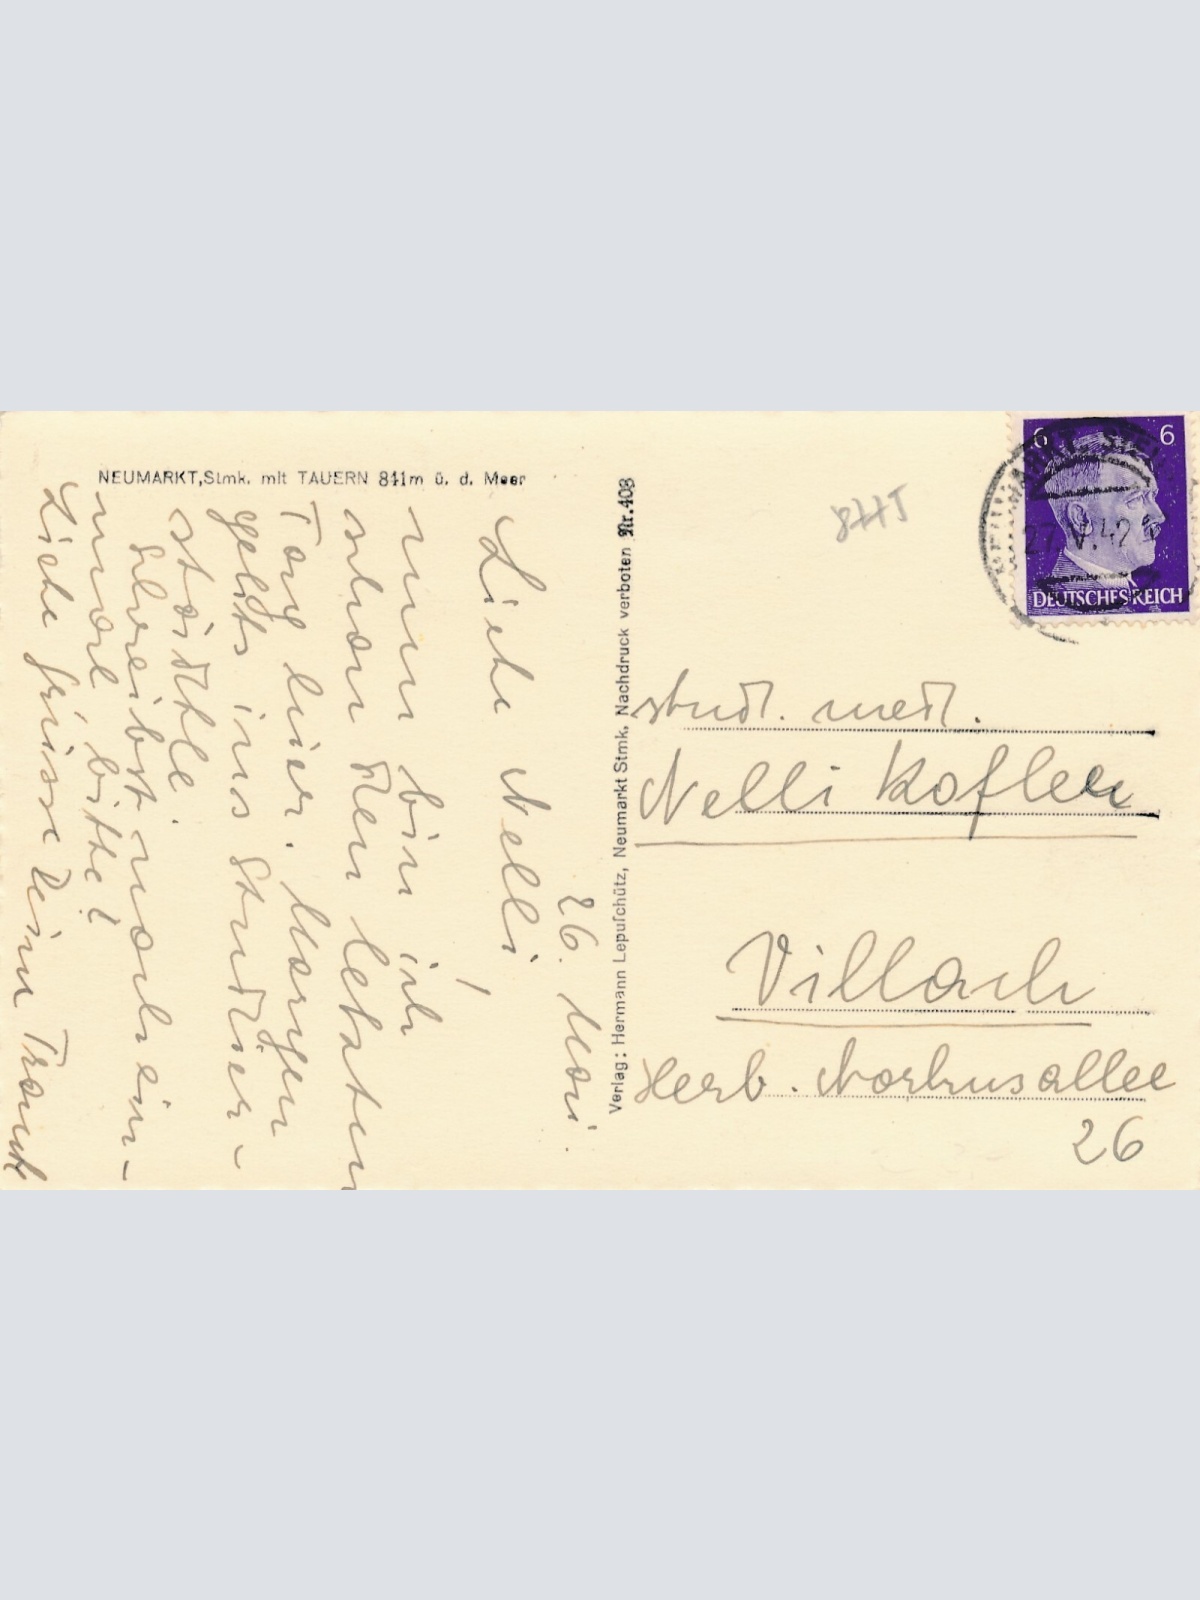 NEUMARKT, Stmk. mit TAUERN 841m ü. d. Meer
26. Mai.
Liebe Nelli,
nun bin ich
schon den letzten
Tag hier. Morgen
gehts ins Studier-
städtle.
Schreibst noch ein-
mal bitte!
Liebe Grüsse Deine Traudl
Verlag: Hermann Lepuschütz, Neumarkt Stmk. Nachdruck verboten Nr. 408
6 6
NEUMARKT
27.V.42
DEUTSCHES REICH
stud. med.
Nelli Kofler
Villach
Herb. Norkusallee
26